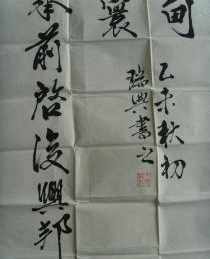 甸
寰
承前啓後興邦
乙未秋初
瑞興書之